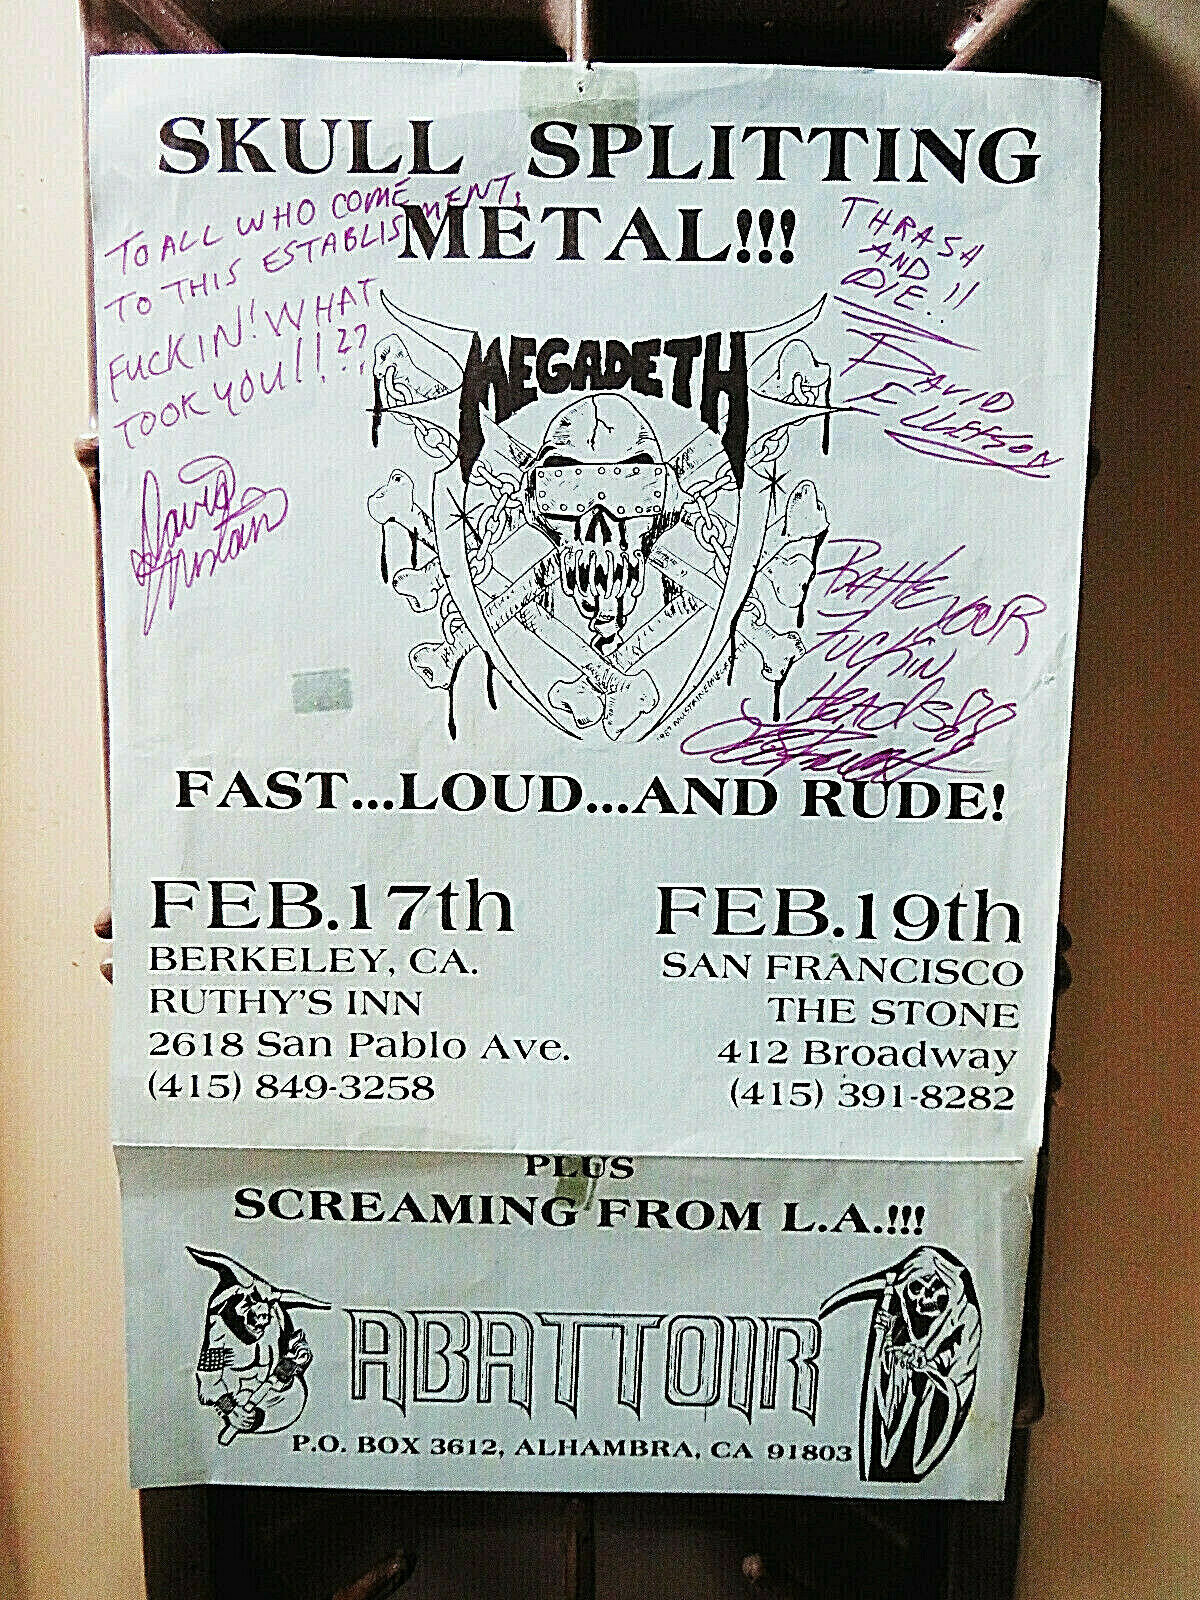 SKULL SPLITTING
METAL!!!
TO ALL WHO COME
TO THIS ESTABLISMENT,
FUCKIN! WHAT
TOOK YOU!!??
David
Mustaine
THRASH
AND
DIE!!
DAVID
ELLEFSON
MEGADETH
RATTLE YOUR
FUCKIN
HEADS
FAST...LOUD...AND RUDE!
FEB.17th
BERKELEY, CA.
RUTHY'S INN
2618 San Pablo Ave.
(415) 849-3258
FEB.19th
SAN FRANCISCO
THE STONE
412 Broadway
(415) 391-8282
PLUS
SCREAMING FROM L.A.!!!
ABATTOIR
P.O. BOX 3612, ALHAMBRA, CA 91803